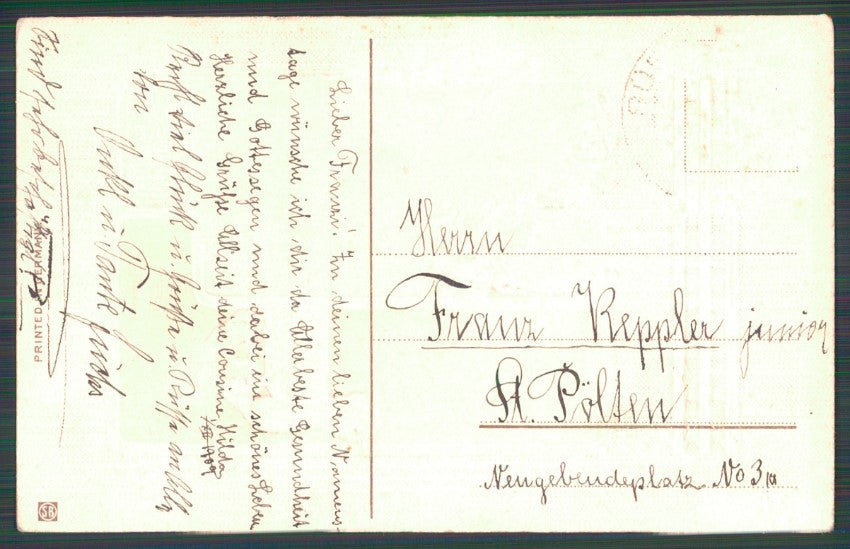 Lieber Franzi! Zu deinen lieben Namens-
tage wünsche ich dir da Allerbeste Gesundheit
und Gottessegen und dabei ein schönes Leben
Herzliche Grüße Allseit deine Cousine Hilda
Recht viel Glück u. Grüße u. Küsse an Alle
von
Onkl u Tante Fuchs
PRINTED GERMANY
Herrn
Franz Keppler junior
St. Pölten
Neugebeudeplatz No 3a
SB